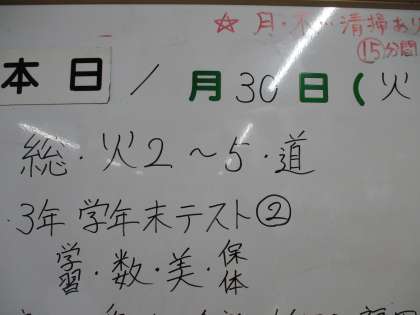 ☆ 月・木…清掃あり
⑮分間
本日 1月30日(火
総・火2〜5・道
・3年 学年末テスト②
学習・数・美・保体